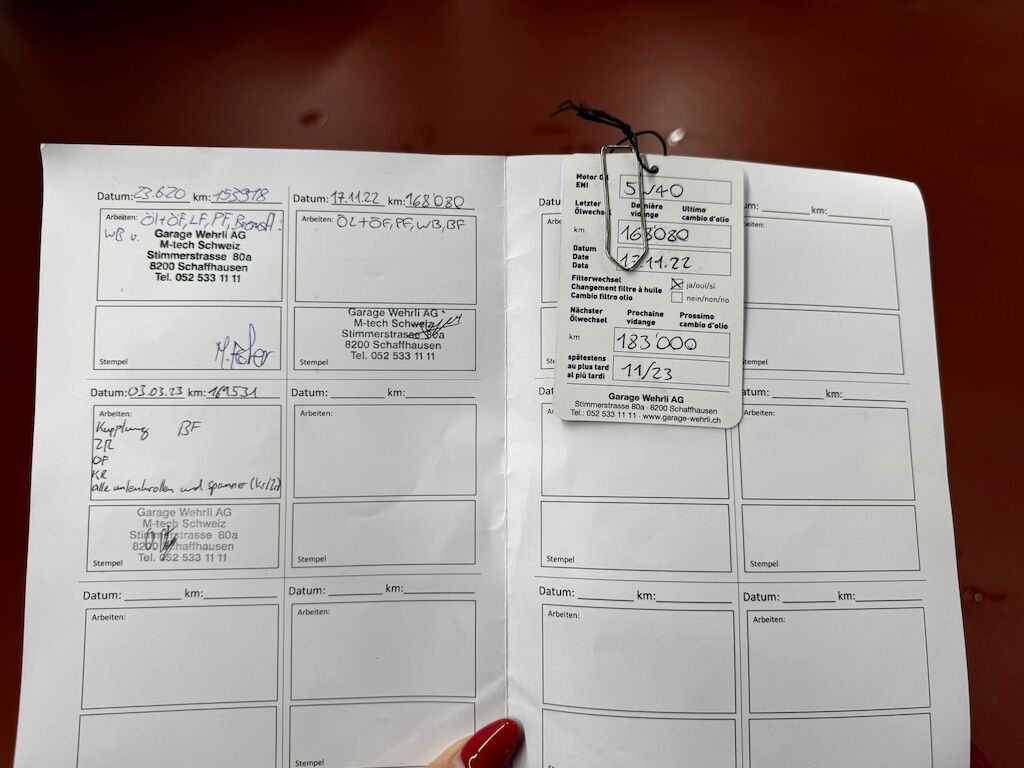 Datum: 23.6.20 km: 153918
Arbeiten: ÖL+ÖF, LF, PF, Bremsfl.
WB u.
Garage Wehrli AG
M-tech Schweiz
Stimmerstrasse 80a
8200 Schaffhausen
Tel. 052 533 11 11
Stempel
Datum: 17.11.22 km: 168'080
Arbeiten: ÖL+ÖF, PF, WB, BF
Garage Wehrli AG
M-tech Schweiz
Stimmerstrasse 80a
8200 Schaffhausen
Tel. 052 533 11 11
Stempel
Datum: 03.03.23 km: 169531
Arbeiten:
Kupplung BF
ZR
ÖF
KR
alle umlenkrollen und spanner (Kr/Zr)
Garage Wehrli AG
M-tech Schweiz
Stimmerstrasse 80a
8200 Schaffhausen
Tel. 052 533 11 11
Stempel
Datum: km:
Arbeiten:
Stempel
Datum: km:
Arbeiten:
Datum: km:
Arbeiten:
Stempel
Motor
ENI
5W40
Letzter Dernière Ultimo
Ölwechsel vidange cambio d'olio
km 168080
Datum
Date
Data
17.11.22
Filterwechsel ja/oui/si
Changement filtre à huile
Cambio filtro olio nein/non/no
Nächster Prochaine Prossimo
Ölwechsel vidange cambio d'olio
km 183'000
spätestens
au plus tard
al più tardi
11/23
Garage Wehrli AG
Stimmerstrasse 80a · 8200 Schaffhausen
Tel.: 052 533 11 11 · www.garage-wehrli.ch
km:
Stempel
km:
Stempel
Stempel
Datum: km:
Arbeiten:
Datum: km:
Arbeiten: